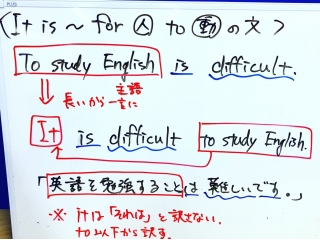 (It is ~ for 人 to 動 の文>
To study English is difficult.
主語
長いから一言に
It is difficult to study English.
「英語を勉強することは難しいです。」
※ itは「それは」と訳さない。
to以下から訳す。